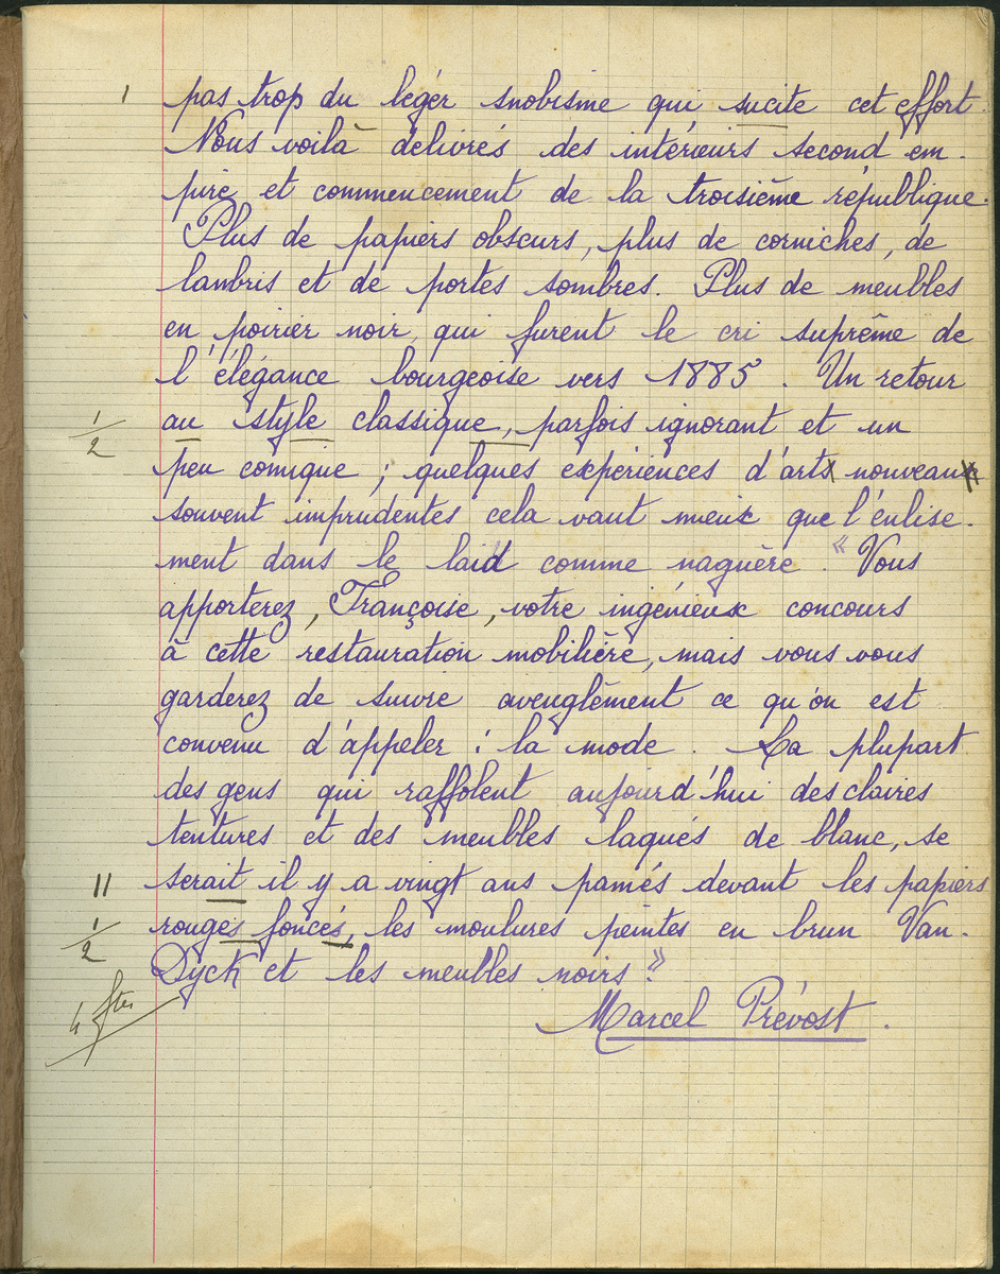 1 pas trop du léger snobisme qui sucite cet effort.
Nous voilà délivrés des intérieurs second em-
pire et commencement de la troisième république.
Plus de papiers obscurs, plus de corniches, de
lanbris et de portes sombres. Plus de meubles
en poirier noir, qui furent le cri suprême de
l'élégance bourgeoise vers 1885. Un retour
1/2 au style classique, parfois ignorant et un
peu comique ; quelques expériences d'arts nouveaux
souvent imprudentes cela vaut mieux que l'enlise-
ment dans le laid comme naguère. « Vous
apporterez, Françoise, votre ingénieux concours
à cette restauration mobilière, mais vous vous
garderez de suivre aveuglément ce qu'on est
convenu d'appeler : la mode. La plupart
des gens qui raffolent aujourd'hui des claires
tentures et des meubles laqués de blanc, se
11 serait il y a vingt ans pamés devant les papiers
1/2 rouges foncés, les moulures peintes en brun Van-
Dyck et les meubles noirs. »
4 ftes
Marcel Prévost.